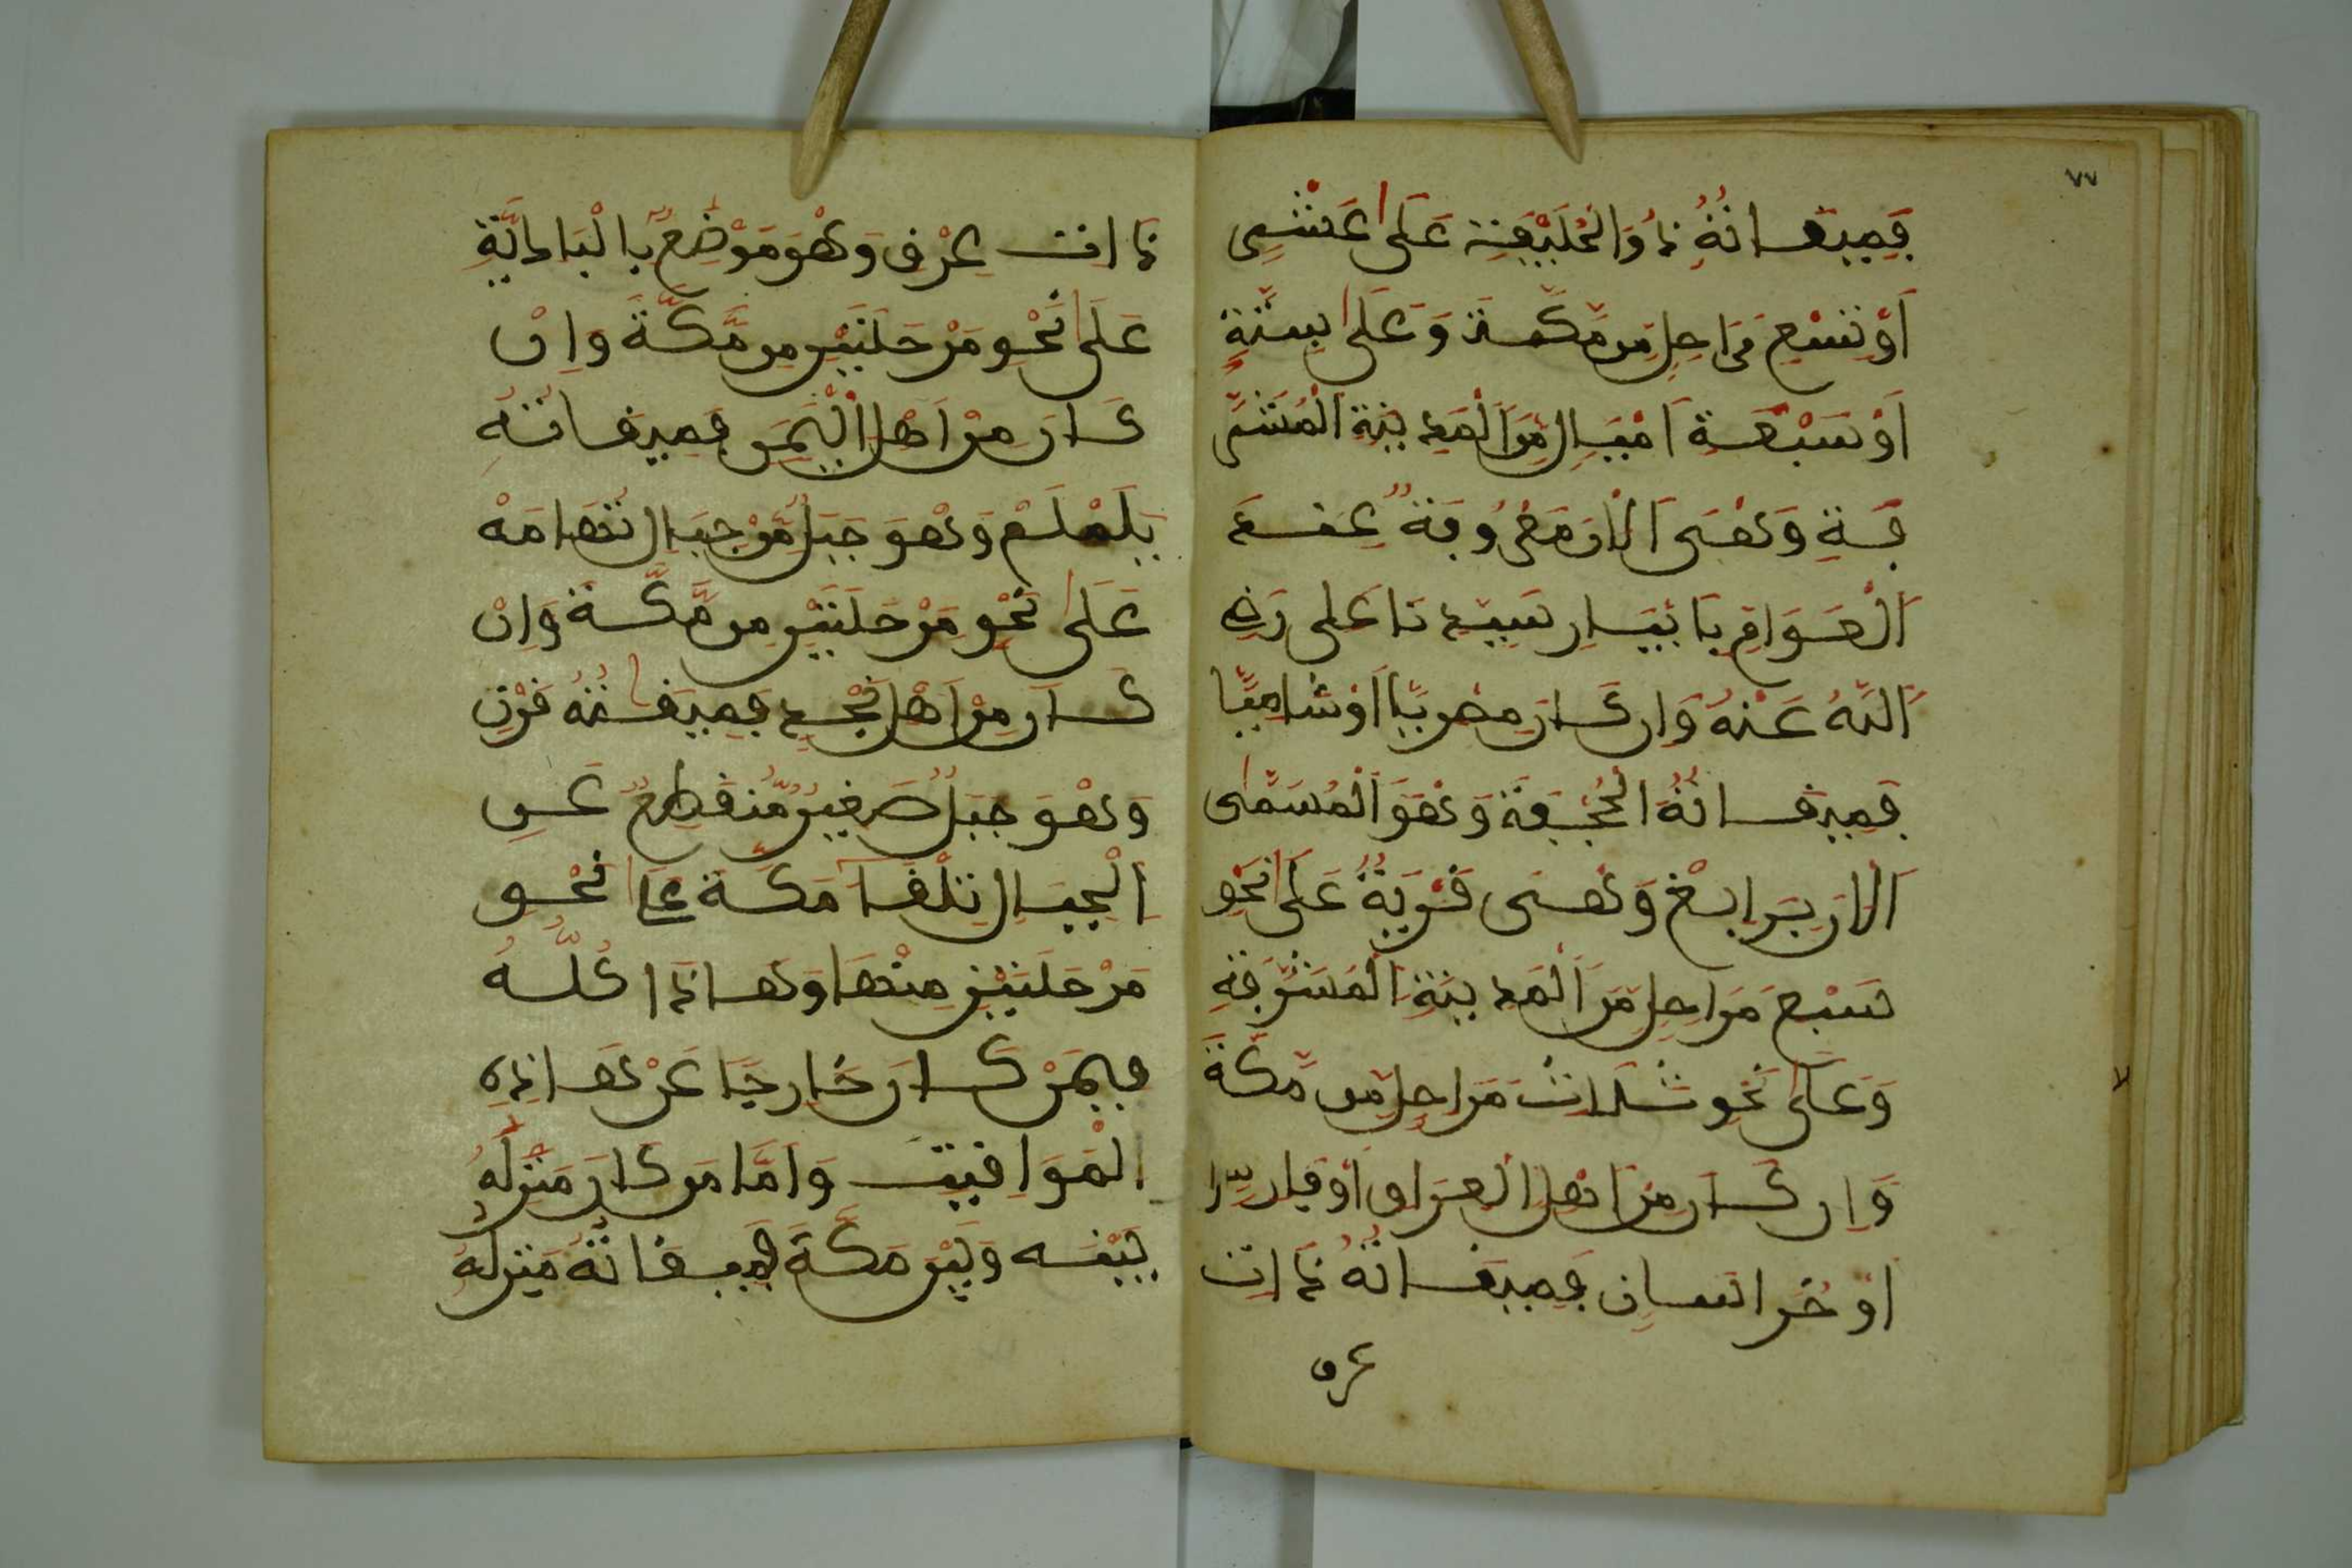 ٧٧
فَمِيقَاتُهُ ذُو الْحُلَيْفَةِ عَلَى عَشْرِ
أَوْ تِسْعِ مَرَاحِلَ مِن مَّكَّةَ وَعَلَى سِتَّةِ
أَوْ سَبْعَةِ أَمْيَالٍ مِّنَ الْمَدِينَةِ الْمُشَرَّ
فَةِ وَهْيَ الْآنَ مَعْرُوفَةٌ عِندَ
الْعَوَامِّ بِآبِيَارِ سَيِّدِنَا عَلِي رَضِيَ
اللَّهُ عَنْهُ وَإِن كَانَ مِصْرِيًّا أَوْ شَامِيًّا
فَمِيقَاتُهُ الْجُحْفَةُ وَهْوَ الْمُسَمَّى
الْآنَ بِرَابِغْ وَهْيَ قَرْيَةٌ عَلَى نَحْوِ
سَبْعِ مَرَاحِلَ مِّنَ الْمَدِينَةِ الْمُشَرَّفَةِ
وَعَلَى نَحْوِ ثَلَاثِ مَرَاحِلَ مِن مَّكَّةَ
وَإِن كَانَ مِنْ أَهْلِ الْعِرَاقِ أَوْ فَارِسٍ
أَوْ خُرَاسَانِ فَمِيقَاتُهُ ذَاتُ
عرق
ذَات عِرْقٍ وَهْوَ مَوْضِعٌ بِالْبَادِيَةِ
عَلَى نَحْوِ مَرْحَلَتَيْنِ مِن مَّكَّةَ وَإِنْ
كَانَ مِنْ أَهْلِ الْيَمَنِ فَمِيقَاتُهُ
يَلَمْلَمْ وَهْوَ جَبَلٌ مِّنْ جِبَالِ تُهَامَهْ
عَلَى نَحْوِ مَرْحَلَتَيْنِ مِن مَّكَّةَ وَإِنْ
كَانَ مِنْ أَهْلِ نَجْدٍ فَمِيقَاتُهُ قَرْنٍ
وَهْوَ جَبَلٌ صَغِيرٌ مُّنْقَطِعٌ عَنِ
الْجِبَالِ تِلْقَا مَكَّةَ عَلَى نَحْوِ
مَرْحَلَتَيْنِ مِنْهَا وَهَاذَا كُلُّهُ
فِيمَنْ كَانَ خَارِجًا عَنْ هَاذِهِ
الْمَوَاقِيتِ وَأَمَّا مَن كَانَ مَنْزِلُهُ
بَيْنَهُ وَبَيْنَ مَكَّةَ فَمِيقَاتُهُ مَنْزِلُهُ